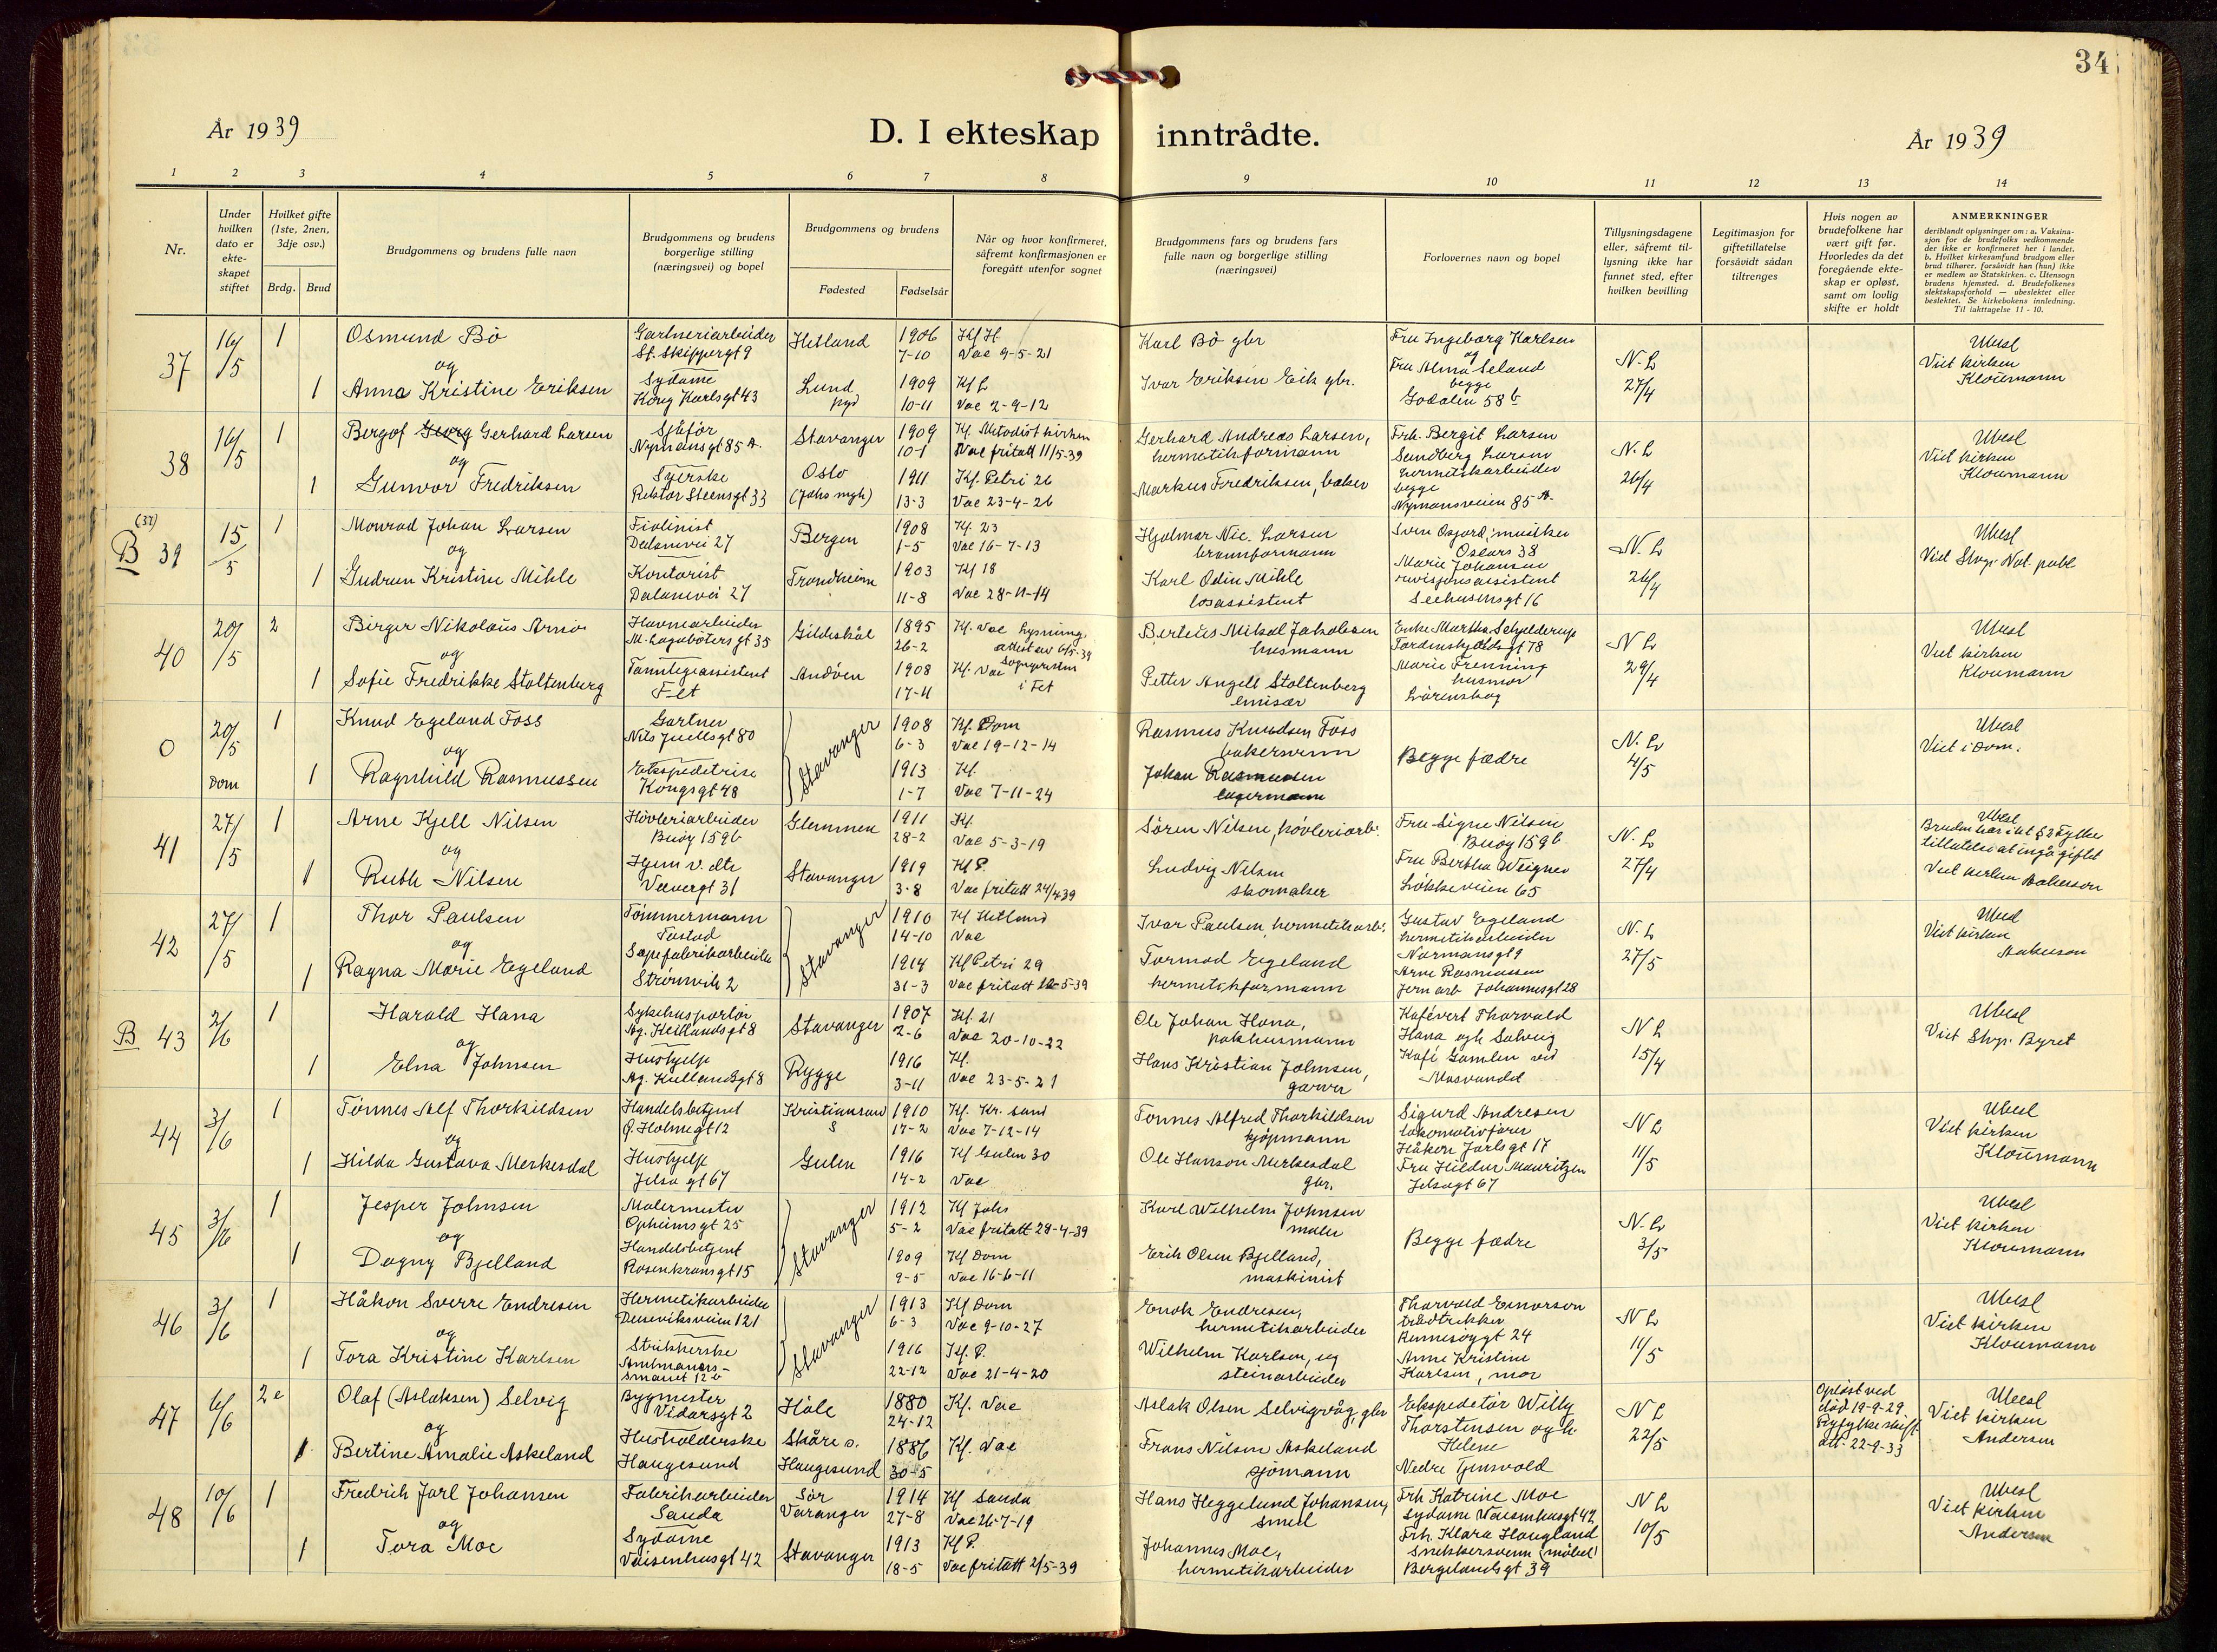 34
År 1939
D. I ekteskap inntrådte.
År 1939
1 2 3 4 5 6 7 8 9 10 11 12 13 14
Nr.
Under hvilken dato er ekte- skapet stiftet
Hvilket gifte (1ste, 2nen, 3dje osv.)
Brdg. Brud
Brudgommens og brudens fulle navn
Brudgommens og brudens borgerlige stilling (næringsvei) og bopel
Brudgommens og brudens
Fødested Fødselsår
Når og hvor konfirmeret, såfremt konfirmasjonen er foregått utenfor sognet
Brudgommens fars og brudens fars fulle navn og borgerlige stilling (næringsvei)
Forlovernes navn og bopel
Tillysningsdagene eller, såfremt til- lysning ikke har funnet sted, efter hvilken bevilling
Legitimasjon for giftetillatelse forsåvidt sådan tiltrenges
Hvis nogen av brudefolkene har vært gift før. Hvorledes da det foregående ekte- skap er opløst, samt om lovlig skifte er holdt
ANMERKNINGER
deriblandt oplysninger om: a. Vaksina- sjon for de brudefolks vedkommende der ikke er konfirmeret her i landet. b. Hvilket kirkesamfund brudgom eller brud tilhører, forsåvidt han (hun) ikke er medlem av Statskirken. c. Utensogn brudens hjemsted. d. Brudefolkenes slektskapsforhold — ubeslektet eller beslektet. Se kirkebokens innledning. Til iakttagelse 11 - 10.
37 16/5 1 Osmund Bö Gartneriarbeider St. Skippergt 9 Hetland 1906 7-10 Kf H. Vac 9-5-21 Karl Bö gbr Fru Ingeborg Karlsen N. L Ubesl
og
1 Anna Kristine Eriksen Sydame Kong Karlsgt 43 Lund 1909 10-11 Kf L Vac 2-9-12 Ivar Eriksen Eik gbr. og Fru Alma Seland begge Godalen 58 b 27/4 Viet kirken Kloumann
38 16/5 1 Bergof Georg Gerhard Larsen Sjåfør Nymansgt 85 A. Stavanger 1909 10-1 Kf. Metodistkirken Vac fritatt 11/5-39 Gerhard Andreas Larsen, hermetikformann Frk. Bergit Larsen N. L Ubesl
og
1 Gunvor Fredriksen Syerske Rektor Steensgt 33 Oslo (Johs mgh) 1911 13-3 Kf. Petri 26 Vac 23-4-26 Markus Fredriksen, baker Sundberg Larsen hermetikarbeider begge Nymansveien 85 A. 26/4 Viet kirken Kloumann
(37) B 39 15/5 1 Monrad Johan Larsen Fiolinist Dalanevei 27 Bergen 1908 1-5 Kf. 23 Vac 16-7-13 Hjalmar Nic. Larsen brannformann musiker Oscars 38 N. L Ubesl
og
1 Gudrun Kristine Mihle Kontorist Dalanevei 27 Trondheim 1903 11-8 Kf 18 Vac 28-11-14 Karl Odin Mihle losassistent Marie Johansen revisjonsassistent Seehusensgt 16 26/4 Viet Stvgr. Not. publ
40 20/5 2 Birger Nikolaus Arnö Havnearbeider M. Lagabøters gt 35 Gildeskål 1895 26-2 Kf. Vac lysning. attest av 6/5-39 Sogneprsten i Fet Berteus Mikal Jakobsen husmann Enke Martha Schjelderup Tordenskjoldsgt 78 N L Ubesl
og
1 Sofie Fredrikke Stoltenberg Tannlegeassistent Fet Andöen 1908 17-11 Kf. Vac Petter Angell Stoltenberg emisær Marie Frenning husmor Lörenskog 29/4 Viet kirken Kloumann
0 20/5 Dom 1 Knud Egeland Foss Gartner Nils Juellsgt 80 Stavanger 1908 6-3 Kf. Dom Vac 19-12-14 Rasmus Knudsen Foss bakersvenn Begge fædre N. L 4/5 Ubesl Viet i Dom.
og
1 Ragnhild Rasmussen Ekspeditrise Kongsgt 48 1913 1-7 Kf. Vac 7-11-24 Johan Rasmussen lagermann
41 27/5 1 Arne Kjell Nilsen Hövleriarbeider Buöy 159b Glemmen 1911 28-2 Kf. Vac 5-3-19 Sören Nilsen, hövleriarb. Fru Signe Nilsen Buöy 159b N. L Ubesl
og
1 Ruth Nilsen Hjem v. dtr Vævergt 31 Stavanger 1919 3-8 Kf P. Vac fritatt 24/4 39 Ludvig Nilsen skomaker Fru Bertha Weigner Lökkeveien 65 27/4 Bruden har iht § 2 Fylke tillatelse at ingå giftet Viet kirken Aakeson
42 27/5 1 Thor Paulsen Tömmermann Tastad Stavanger 1910 14-10 Kf Hetland Vac Ivar Paulsen, hermetikarb. Gustav Egeland hermetikarbeider Normansgt 9 N. L Ubesl
og
1 Ragna Marie Egeland Sapefabrikarbeider Strömvik 2 1914 31-3 Kf Petri 29 Vac fritatt 22-5-39 Tormod Egeland hermetikformann Arne Rasmussen Jern arb Johannesgt 28 27/5 Viet kirken Aakeson
B 43 2/6 1 Harald Hana Sykehusportör Ag. Kiellandsgt 8 Stavanger 1907 2-6 Kf. 21 Vac 20-10-22 Ole Johan Hana, pakhusmann Kafévert Thorvald Hana og h Solveig N L Ubesl
og
1 Elna Johnsen Hushjelp Ag. Kiellandsgt 8 Rygge 1916 3-11 Kf. Vac 23-5-21 Hans Kristian Johnsen, garver Kafé Gamlen ved Mosvandet 15/4 Viet Stvgr. Byret
44 3/6 1 Tönnes Alf Thorkildsen Handelsbetjent G. Holmegt 12 Kristiansand S 1910 17-2 Kf. Kr. sand Vac 7-12-14 Tönnes Alfred Thorkildsen kjöpmann Sigurd Andresen lokomotivförer Håkon Jarlsgt 17 N L Ubesl
og
1 Hilda Gustava Merkesdal Hushjelp Jelsa gt 67 Gulen 1916 14-2 Kf Gulen 30 Vac Ole Hanson Merkesdal gbr. Fru Hildur Mauritzen Jelsagt 67 11/5 Viet kirken Kloumann
45 3/6 1 Jesper Johnsen Malermester Opheimsgt 25 Stavanger 1912 5-2 Kf Johs Vac fritatt 28-4-39 Karl Wilhelm Johnsen maler Begge fædre N. L 3/5 Ubesl
og
1 Dagny Bjelland Handelsbetjent Rosenkransgt 15 1909 9-5 Kf Dom Vac 16-6-11 Erik Olsen Bjelland, maskinist Viet kirken Kloumann
46 3/6 1 Håkon Sverre Endresen Hermetikarbeider Duseviksveien 121 Stavanger 1913 6-3 Kf Dom Vac 9-10-27 Enok Endresen, hermetikarbeider Thorvald Einarson trådtrikker Rennesøygt 24 N L Ubesl
og
1 Tora Kristine Karlsen Strikkerske Amtmanns- smauet 12 b 1916 22-12 Kf. P. Vac 21-4-20 Wilhelm Karlsen, steinarbeider Anne Kristine Karlsen, mor 11/5 Viet kirken Kloumann
47 6/6 2e Olaf (Aslaksen) Selvig Bygmester Vidarsgt 2 Höle 1880 24-12 Kf. Vac Aslak Olsen Selvigvåg, gbr Ekspeditör Willy Thorstensen og h. N L Opløst ved död 19-9-29 Ryfylke skift. att- 22-9-33 Ubesl
og
1 Bertine Amalie Askeland Husholderske Haugesund Skåre s. Haugesund 1886 30-5 Kf. Vac Frans Nilsen Askeland sjömann Helene Nedre Tjensvold 22/5 Viet kirken Andersen
48 10/6 1 Fredrik Jarl Johansen Fabrikarbeider Sauda Sör Varanger 1914 27-8 Kf Sauda Vac 26-7-19 Hans Heggelund Johansen, smed Frk Katrine Moe sydame Vaisenhusgt 42 N L Ubesl
og
1 Tora Moe Sydame Vaisenhusgt 42 Stavanger 1913 18-5 Kf P. Vac fritatt 2/5-39 Johannes Moe, hermetikarbeider Frk. Klara Haugland snekkersvenn (möbel) Bergelandsgt 39 10/5 Viet kirken Andersen